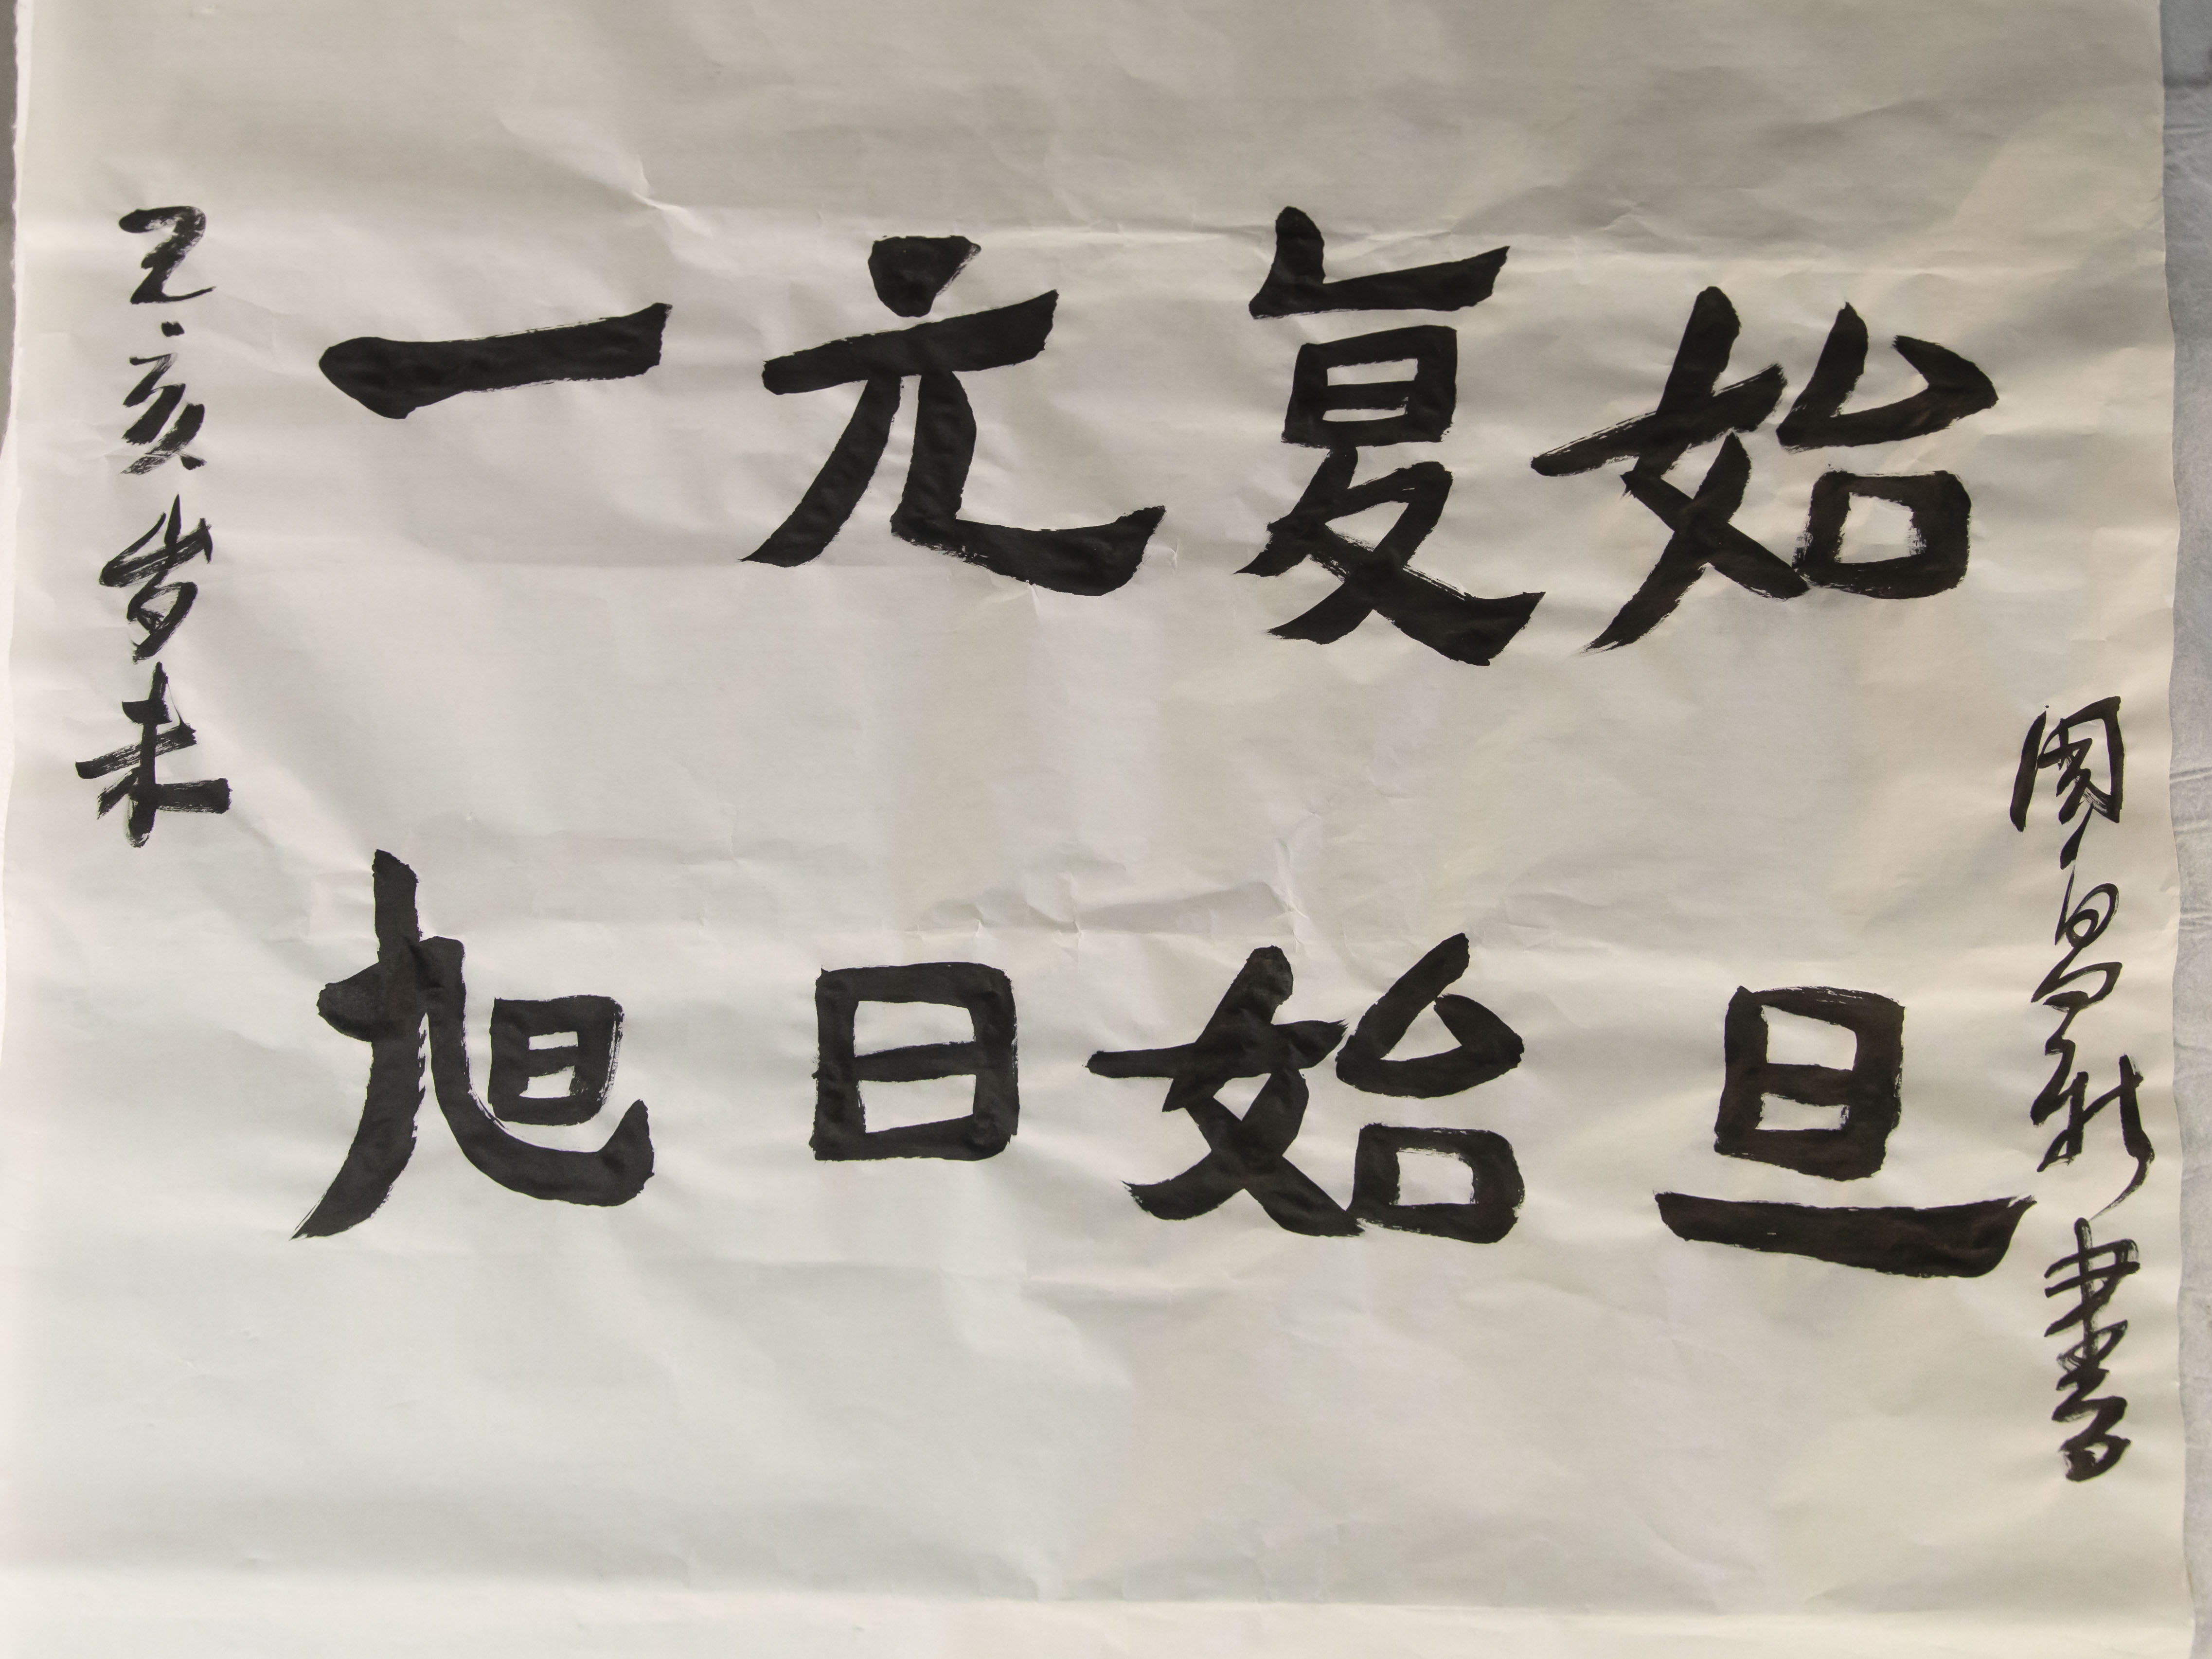 己亥岁末
一元复始
旭日始旦
周昌新書